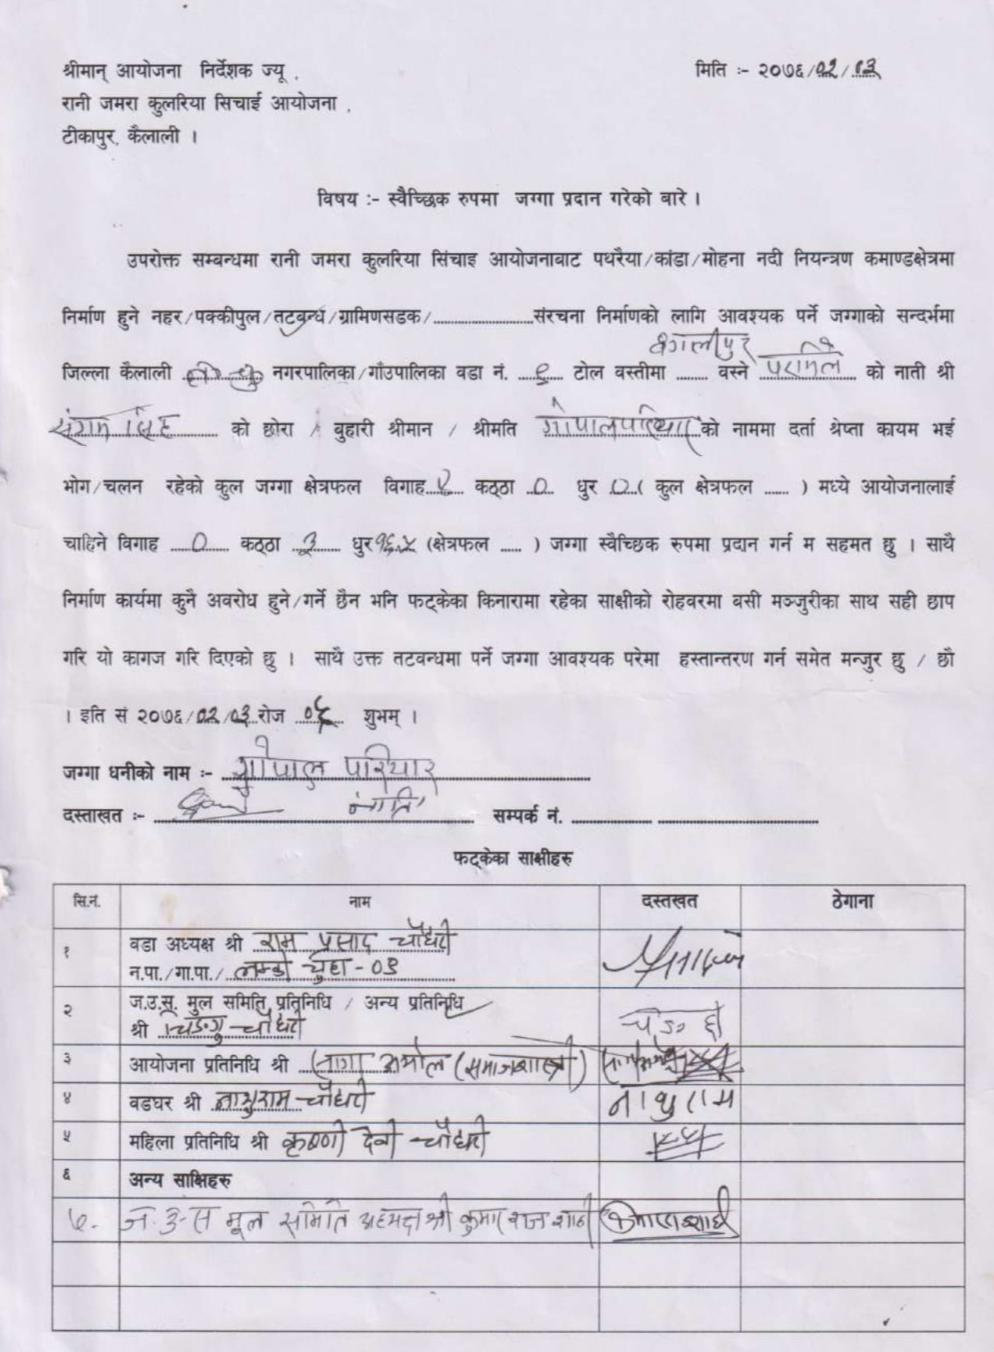 श्रीमान् आयोजना निर्देशक ज्यू ,
मिति :- २०७६/०२/०३
रानी जमरा कुलरिया सिचाई आयोजना ,
टीकापुर, कैलाली ।
विषय :- स्वैच्छिक रुपमा जग्गा प्रदान गरेको बारे ।
उपरोक्त सम्बन्धमा रानी जमरा कुलरिया सिंचाइ आयोजनाबाट पथरैया/कांडा/मोहना नदी नियन्त्रण कमाण्डक्षेत्रमा
निर्माण हुने नहर/पक्कीपुल/तटबन्ध/ग्रामिणसडक/....................संरचना निर्माणको लागि आवश्यक पर्ने जग्गाको सन्दर्भमा
जिल्ला कैलाली नगरपालिका/गाँउपालिका वडा नं. ...९... टोल वस्तीमा ....... वस्ने को नाती श्री
को छोरा / बुहारी श्रीमान / श्रीमति गोपाल परियार को नाममा दर्ता श्रेष्ता कायम भई
भोग/चलन रहेको कुल जग्गा क्षेत्रफल विगाह कठ्ठा ..0.. धुर ..0..( कुल क्षेत्रफल ...... ) मध्ये आयोजनालाई
चाहिने विगाह ....0.... कठ्ठा ..३.. धुर १६.५ (क्षेत्रफल ..... ) जग्गा स्वैच्छिक रुपमा प्रदान गर्न म सहमत छु । साथै
निर्माण कार्यमा कुनै अवरोध हुने/गर्ने छैन भनि फट्केका किनारामा रहेका साक्षीको रोहवरमा वसी मञ्जुरीका साथ सही छाप
गरि यो कागज गरि दिएको छु । साथै उक्त तटवन्धमा पर्ने जग्गा आवश्यक परेमा हस्तान्तरण गर्न समेत मन्जुर छु / छौ
। इति सं २०७६/०२/०३ रोज ..०६.. शुभम् ।
जग्गा धनीको नाम :- गोपाल परियार
दस्ताखत :- सम्पर्क नं. ................ ................................
फट्केका साक्षीहरु
सि.नं. नाम दस्तखत ठेगाना
१ वडा अध्यक्ष श्री राम प्रसाद चौधरी
न.पा./गा.पा./ लम्की चुहा - ०९
२ ज.उ.सू. मुल समिति प्रतिनिधि / अन्य प्रतिनिधि
श्री चौधरी
३ आयोजना प्रतिनिधि श्री (समाजशास्त्री)
४ वडघर श्री नाथुराम चौधरी नाथुराम
५ महिला प्रतिनिधि श्री कृष्णी देवी चौधरी
६ अन्य साक्षिहरु
७. ज.उ.स मूल समिति अध्यक्ष श्री कुमार राज शाही